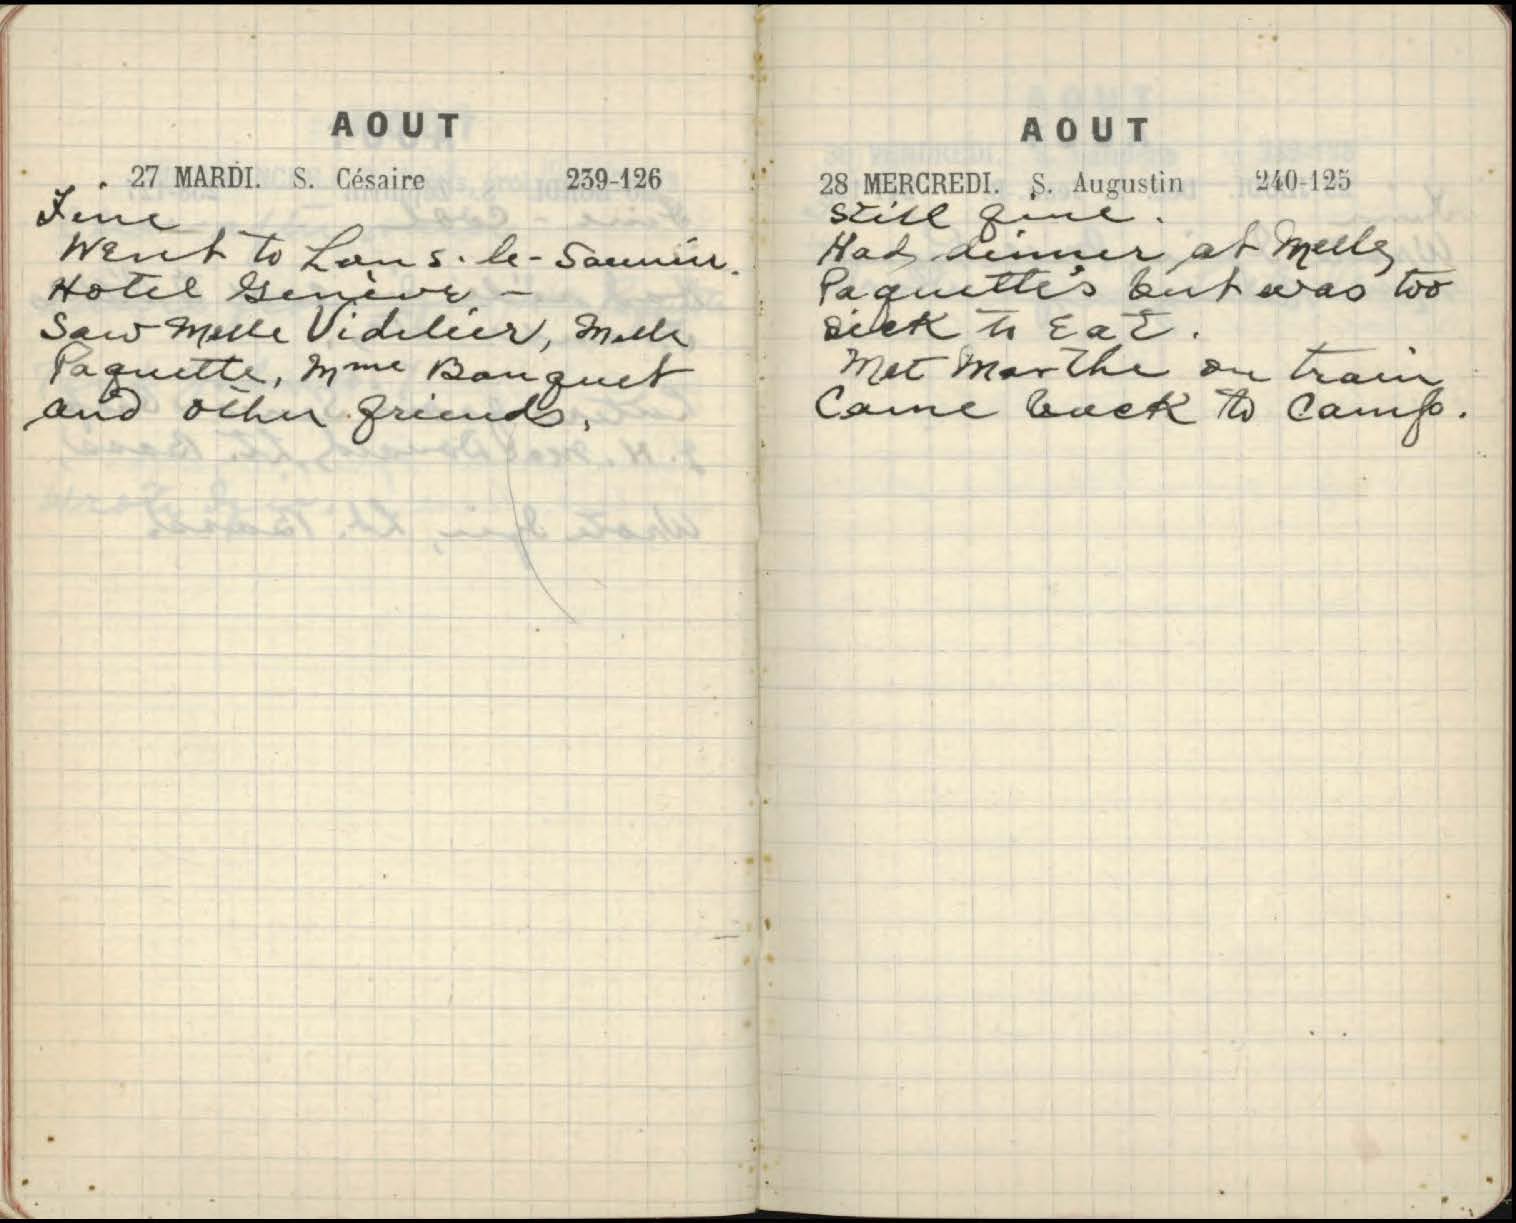 AOUT
27 MARDI. S. Césaire 239-126
Fine
Went to Lons-le-Saunier.
Hotel Genève -
Saw Melle Videlier, Melle
Paquette, Mme Banquet
and other friends.
AOUT
28 MERCREDI. S. Augustin 240-125
Still fine.
Had dinner at Melle
Paquette's but was too
sick to eat.
Met Marthe on train
Came back to Camp.